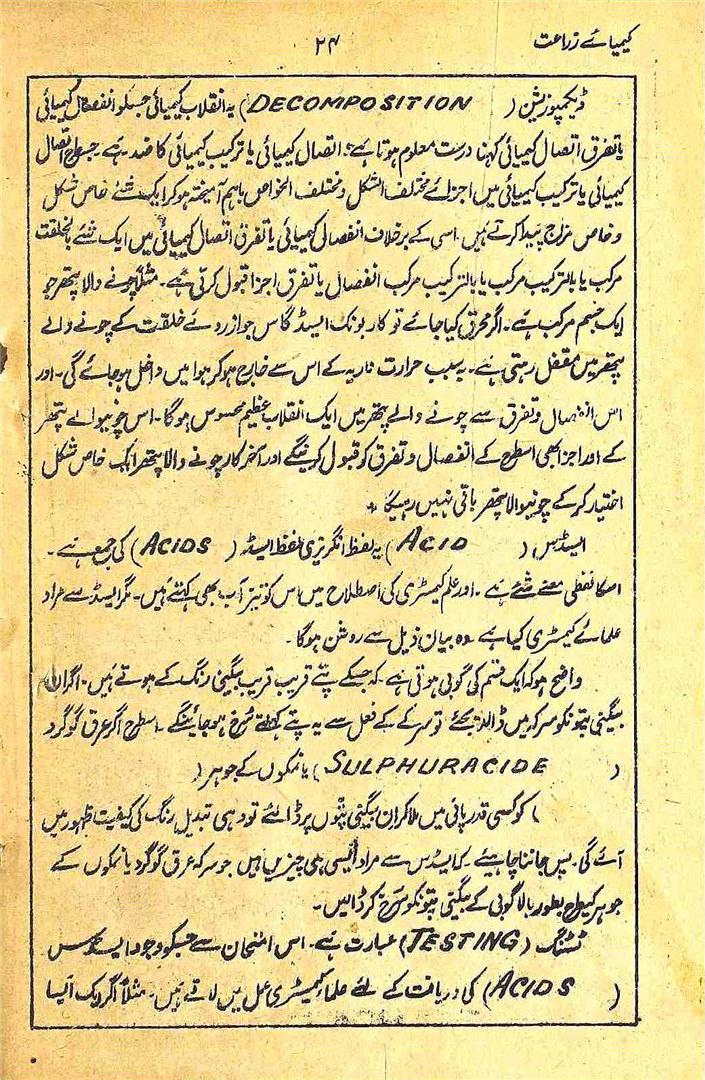 کیمیائے زراعت
۲۴
ڈیکمپوزیشن (DECOMPOSITION) یہ انقلاب کیمیائی جسکو انفصال کیمیائی
یا تفرق اتصال کیمیائی کہنا درست معلوم ہوتا ہے۔ اتصال کیمیائی یا ترکیب کیمیائی کا ضد ہے جسطرح اتصال
کیمیائی یا ترکیب کیمیائی میں اجزائے مختلف الشکل و مختلف الخواص باہم آمیختہ ہوکر ایک شئے خاص شکل
و خاص مزاج پیدا کرتے ہیں۔ اسی کے برخلاف انفصال کیمیائی یا تفرق اتصال کیمیائی میں ایک شئے بالخلقت
مرکب یا بالترکیب مرکب یا بالترکیب مرکب انفصال یا تفرق اجزا قبول کرتی ہے۔ مثلاً چونے والا پتھر جو
ایک جسم مرکب ہے۔ اگر محرق کیا جائے تو کاربونک ایسڈ گاس جو از روئے خلقت کے چونے والے
پتھر میں مقفل رہتی ہے۔ بہ سبب حرارت ناریہ کے اس سے خارج ہوکر ہوا میں داخل ہو جائے گی۔ اور
اس انفصال و تفرق سے چونے والے پتھر میں ایک انقلاب عظیم محسوس ہوگا۔ اس چونیوالے پتھر
کے اور اجزا بھی اسطرح کے انفصال و تفرق کو قبول کرینگے اور آخر کار چونے والا پتھر ایک خاص شکل
اختیار کرکے چونیوالا پتھر باقی نہیں رہیگا ٭
ایسڈس (ACID) یہ لفظ انگریزی لفظ ایسڈ (ACIDS) کی جمع ہے۔
اسکا لفظی معنے شئے ہے۔ اور علم کیمسٹری کی اصطلاح میں اس کو تیزاب بھی کہتے ہیں۔ مگر ایسڈ سے مراد
علمائے کیمسٹری کیا ہے وہ بیان ذیل سے روشن ہوگا۔
واضح ہو کہ ایک قسم کی گوبی ہوتی ہے۔ کہ جسکے پتے قریب قریب بیگنی رنگ کے ہوتے ہیں۔ اگر ان
بیگنی پتونکو سرکہ میں ڈالدیجئے تو سرکے کے فعل سے یہ پتے سُرخ ہو جائینگے۔ اسطرح اگر عرق گوگرد
(SULPHURACIDE) یا نمکوں کے جوہر (
) کو کسی قدر پانی میں ملاکر ان بیگنی پتوں پر ڈالئے تو وہی تبدیل رنگ کی کیفیت ظہور میں
آئے گی۔ پس جاننا چاہیئے کہ ایسڈس سے مراد ایسی ہی چیزیں ہیں جو سرکہ عرق گوگرد یا نمکوں کے
جوہر کیطرح بطور بالا گوبی کے بیگنی پتونکو سُرخ کر ڈالیں۔
ٹسٹنگ (TESTING) عبارت ہے۔ اس امتحان سے جسکو وجود ایسڈس
(ACIDS) کی دریافت کے لئے علمائے کیمسٹری عمل میں لاتے ہیں۔ مثلاً اگر ایک ایسا